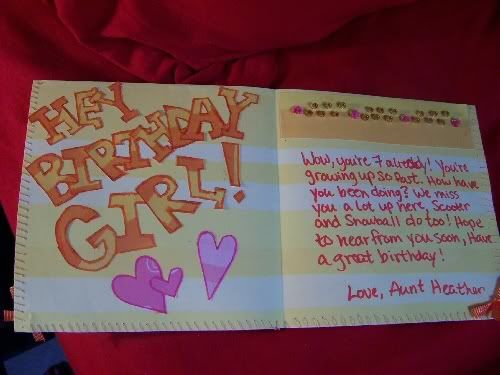 HEY
BIRTHDAY
GIRL!
Wow, you're 7 already! You're
growing up so fast. How have
you been doing? We miss
you a lot up here. Scooter
and Snowball do too! Hope
to hear from you soon, Have
a great birthday!
Love, Aunt Heather